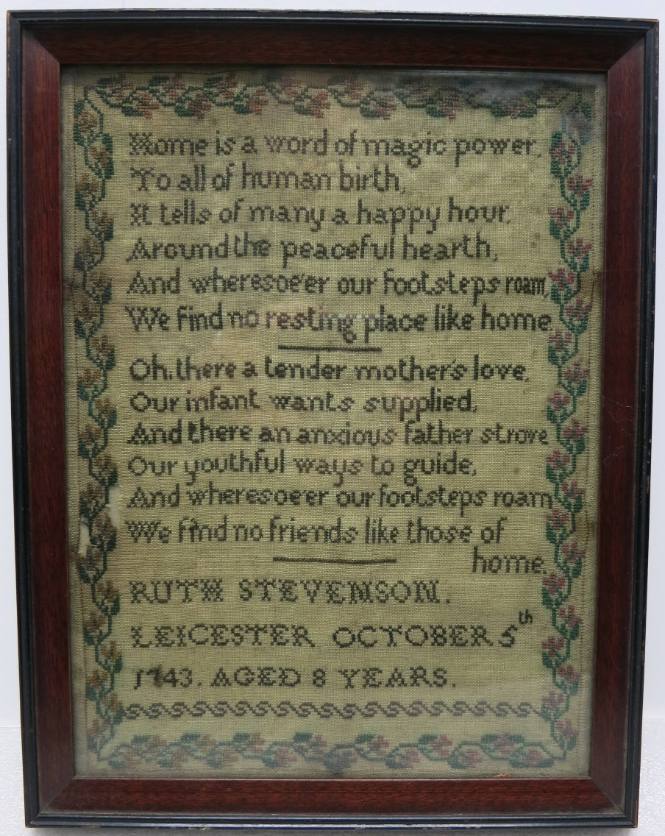 Home is a word of magic power,
To all of human birth,
It tells of many a happy hour,
Around the peaceful hearth,
And wheresoe'er our footsteps roam,
We find no resting place like home.
Oh, there a tender mother's love,
Our infant wants supplied,
And there an anxious father strove
Our youthful ways to guide,
And wheresoe'er our footsteps roam
We find no friends like those of
home.
RUTH STEVENSON.
LEICESTER OCTOBER 5th
1743. AGED 8 YEARS.